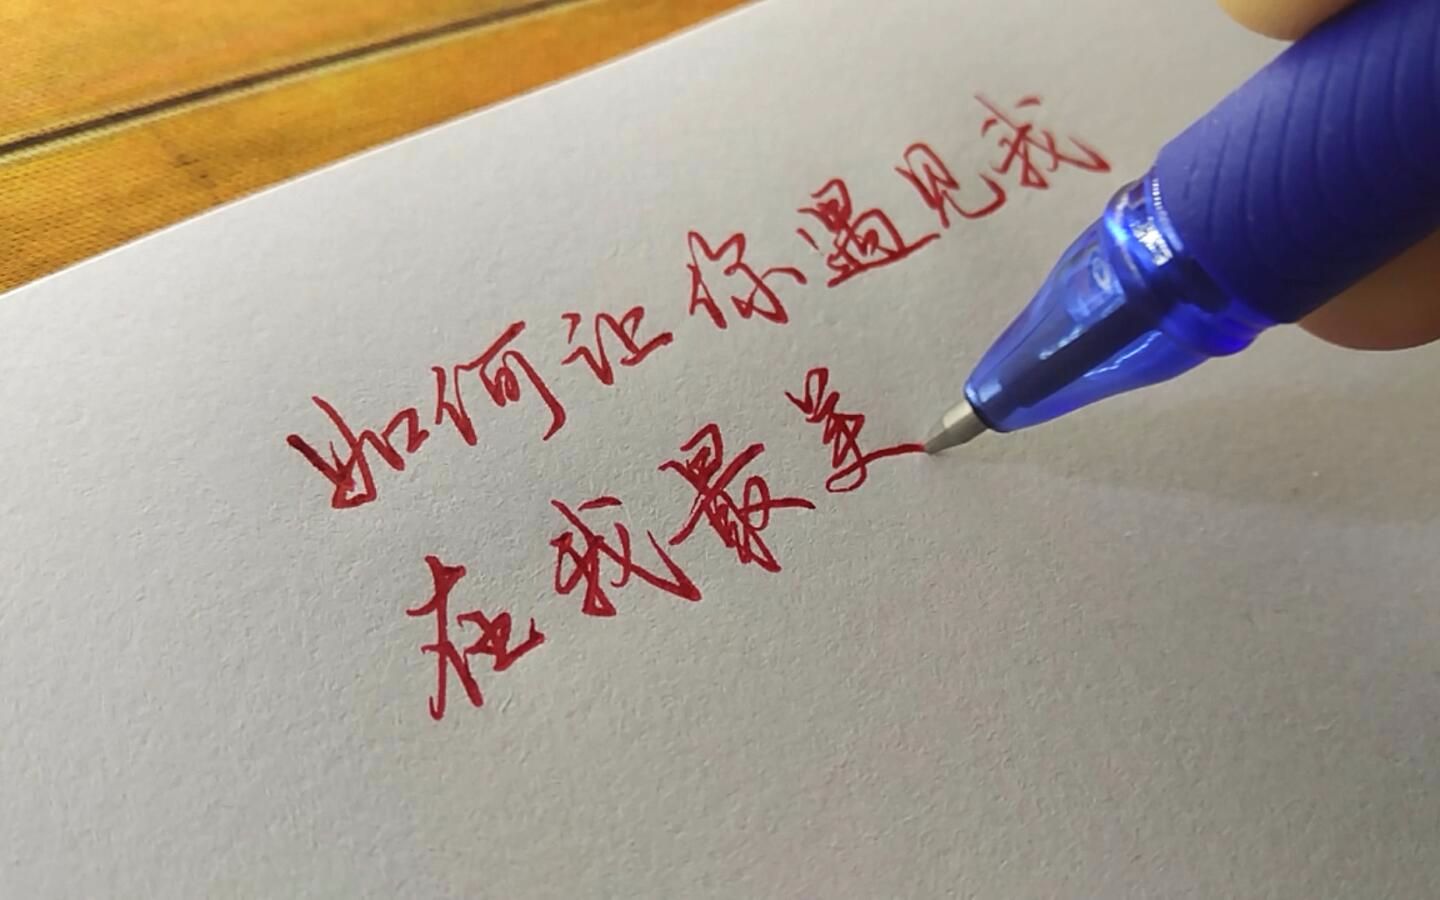 如何让你遇见我
在我最